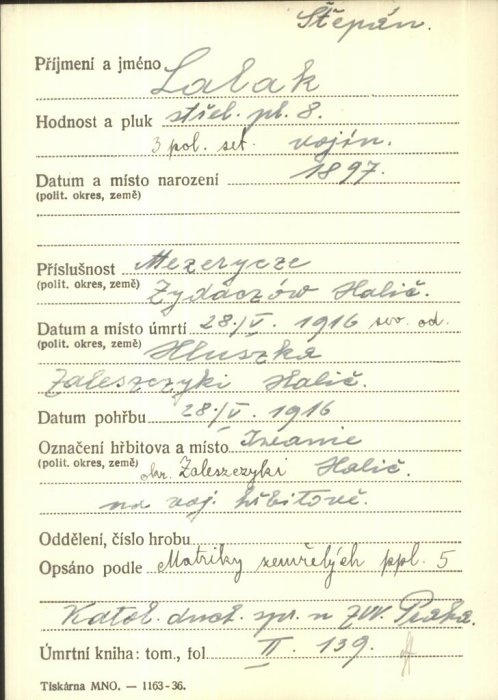 Štěpán.
Příjmení a jméno Lalak
Hodnost a pluk střel. pl. 8.
3 pol. set. vojín.
Datum a místo narození 1897.
(polit. okres, země)
Příslušnost Mezerycze
(polit. okres, země) Zydaczów Halič.
Datum a místo úmrtí 28./V. 1916 svv. od.
(polit. okres, země) Hluszka
Zaleszczyki Halič.
Datum pohřbu 28./V. 1916
Označení hřbitova a místo Iwanie
(polit. okres, země) okr. Zaleszczyki Halič.
na voj. hřbitově.
Oddělení, číslo hrobu
Opsáno podle Matriky zemřelých ppl. 5
Katol. duch. spr. u ZVV. Praha.
Úmrtní kniha: tom., fol. II. 139.
Tiskárna MNO. — 1163-36.